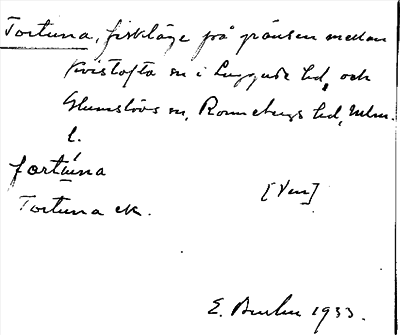 Tortuna, fiskläge på gränsen mellan
Kvistofta sn i Luggude hd, och
Glumslövs sn, Rönnebergs hd, Mlm.
l.
fortuna
Tortuna ek. [Ven]
E. 1933.